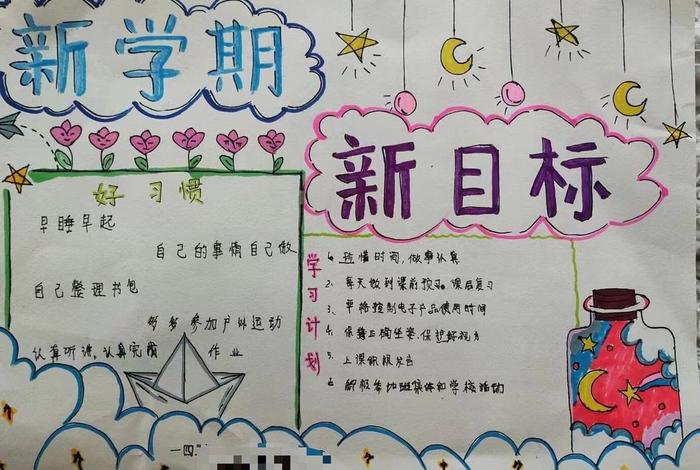 新学期
新目标
好习惯
早睡早起
自己的事情自己做
自己整理书包
多多参加户外运动
认真听讲,认真完成作业
学习计划
1、珍惜时间,做事认真
2、每天做到课前预习。课后复习
3、严格控制电子产品使用时间
4、保持正确坐姿,保护好视力
5、上课积极发言
6、积极参加班集体和学校活动
一四.